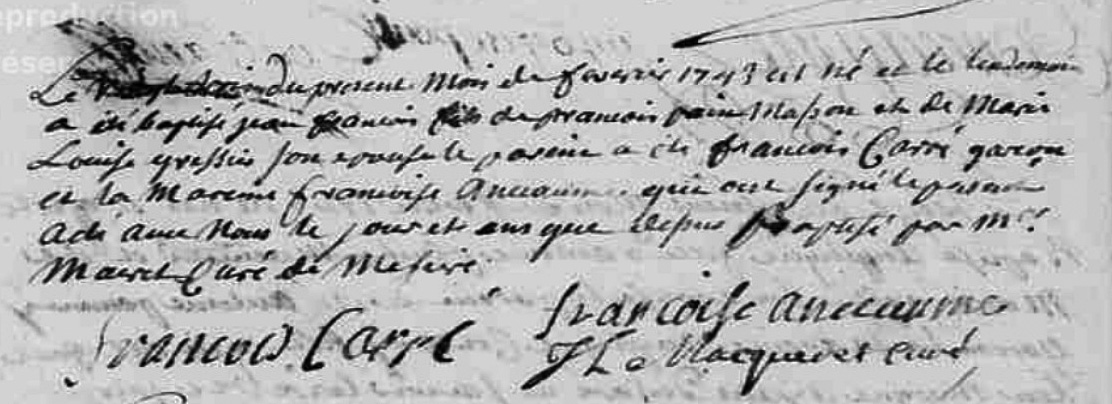 eproduction
éser
Le du present mois de fevrier 1743 est né et le lendemain
a été baptisé jean francois fils de francois pain Masson et de Marie
Louise gressier son epouse le parein a eté francois Carré garcon
et la Mareine francoise anceaume qui ont signé le present
acte avec Nous le jour et ans que depsus baptisé par Mre
curé de
francois Carré
francoise anceaume
curé